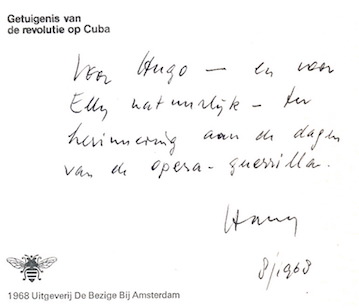 Getuigenis van
de revolutie op Cuba
Voor Hugo – en voor
Elly natuurlijk – ter
herinnering aan de dagen
van de opera-guerrilla.
Harry
8/1968
1968 Uitgeverij De Bezige Bij Amsterdam